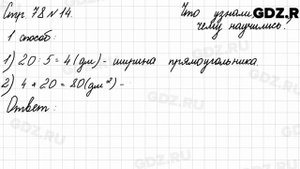 Стр 78 № 14.
Что узнали,
чему научились?
GDZ.RU
1 способ:
1) 20 : 5 = 4 (дм) - ширина прямоугольника.
2) 4 * 20 = 80 (дм²) -
Ответ: